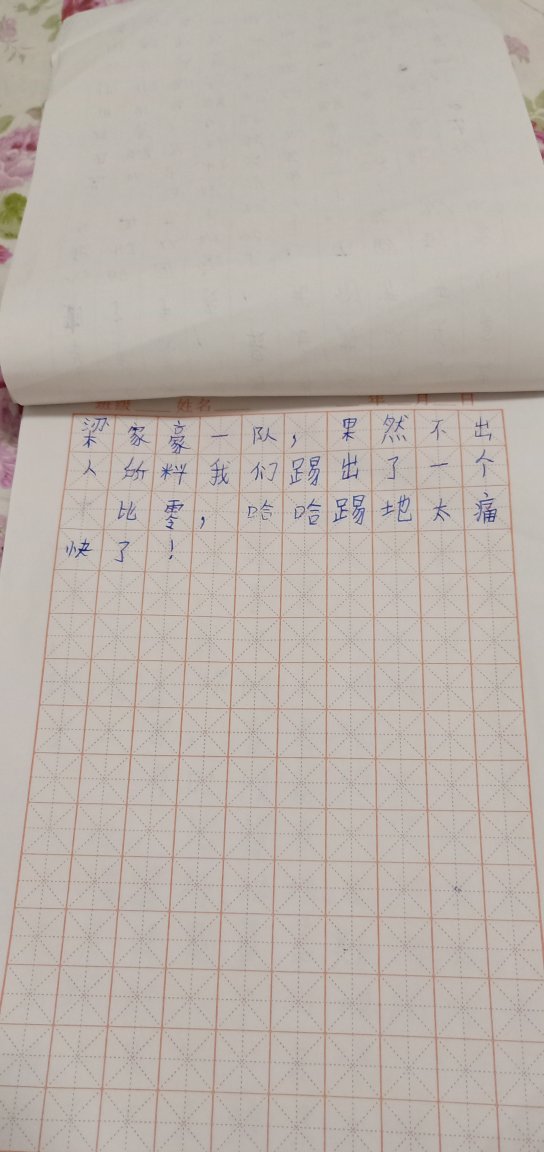 班级 姓名 年 月 日
梁家豪一队，果然不出
人所料我们踢出了一个
比零，哈哈踢地太痛
快了！